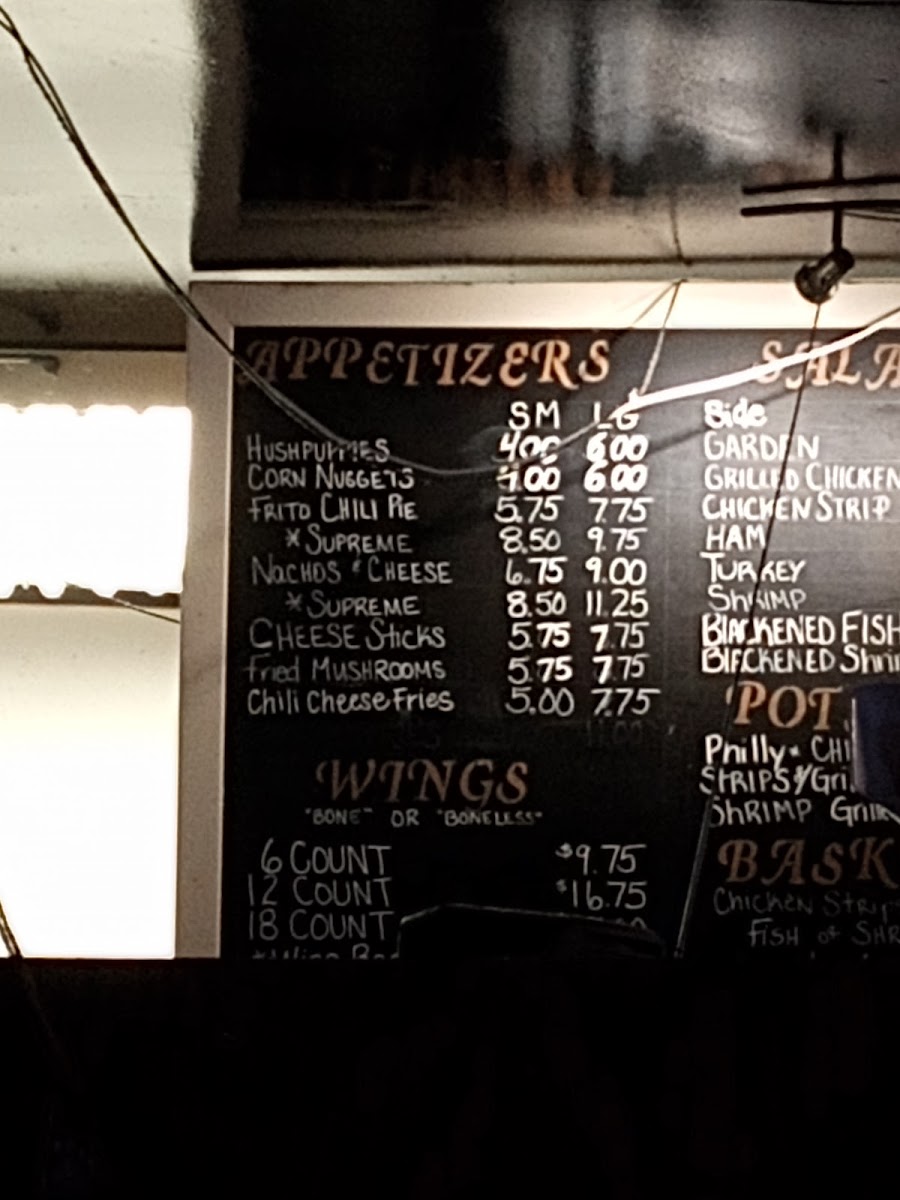 APPETIZERS
SM LG
HUSHPUPPIES 4.00 6.00
CORN NUGGETS 4.00 6.00
FRITO CHILI PIE 5.75 7.75
*SUPREME 8.50 9.75
NACHOS & CHEESE 6.75 9.00
*SUPREME 8.50 11.25
CHEESE Sticks 5.75 7.75
Fried MUSHROOMS 5.75 7.75
Chili Cheese Fries 5.00 7.75
WINGS
"BONE" OR "BONELESS"
6 COUNT $9.75
12 COUNT $16.75
18 COUNT
Side
GARDEN
GRILLED CHICKEN
CHICKEN STRIP
HAM
TURKEY
SHRIMP
BlACKENED FISH
POT
Philly
STRIPS
SHRIMP
BASK
Chicken Strip
FISH or SHR